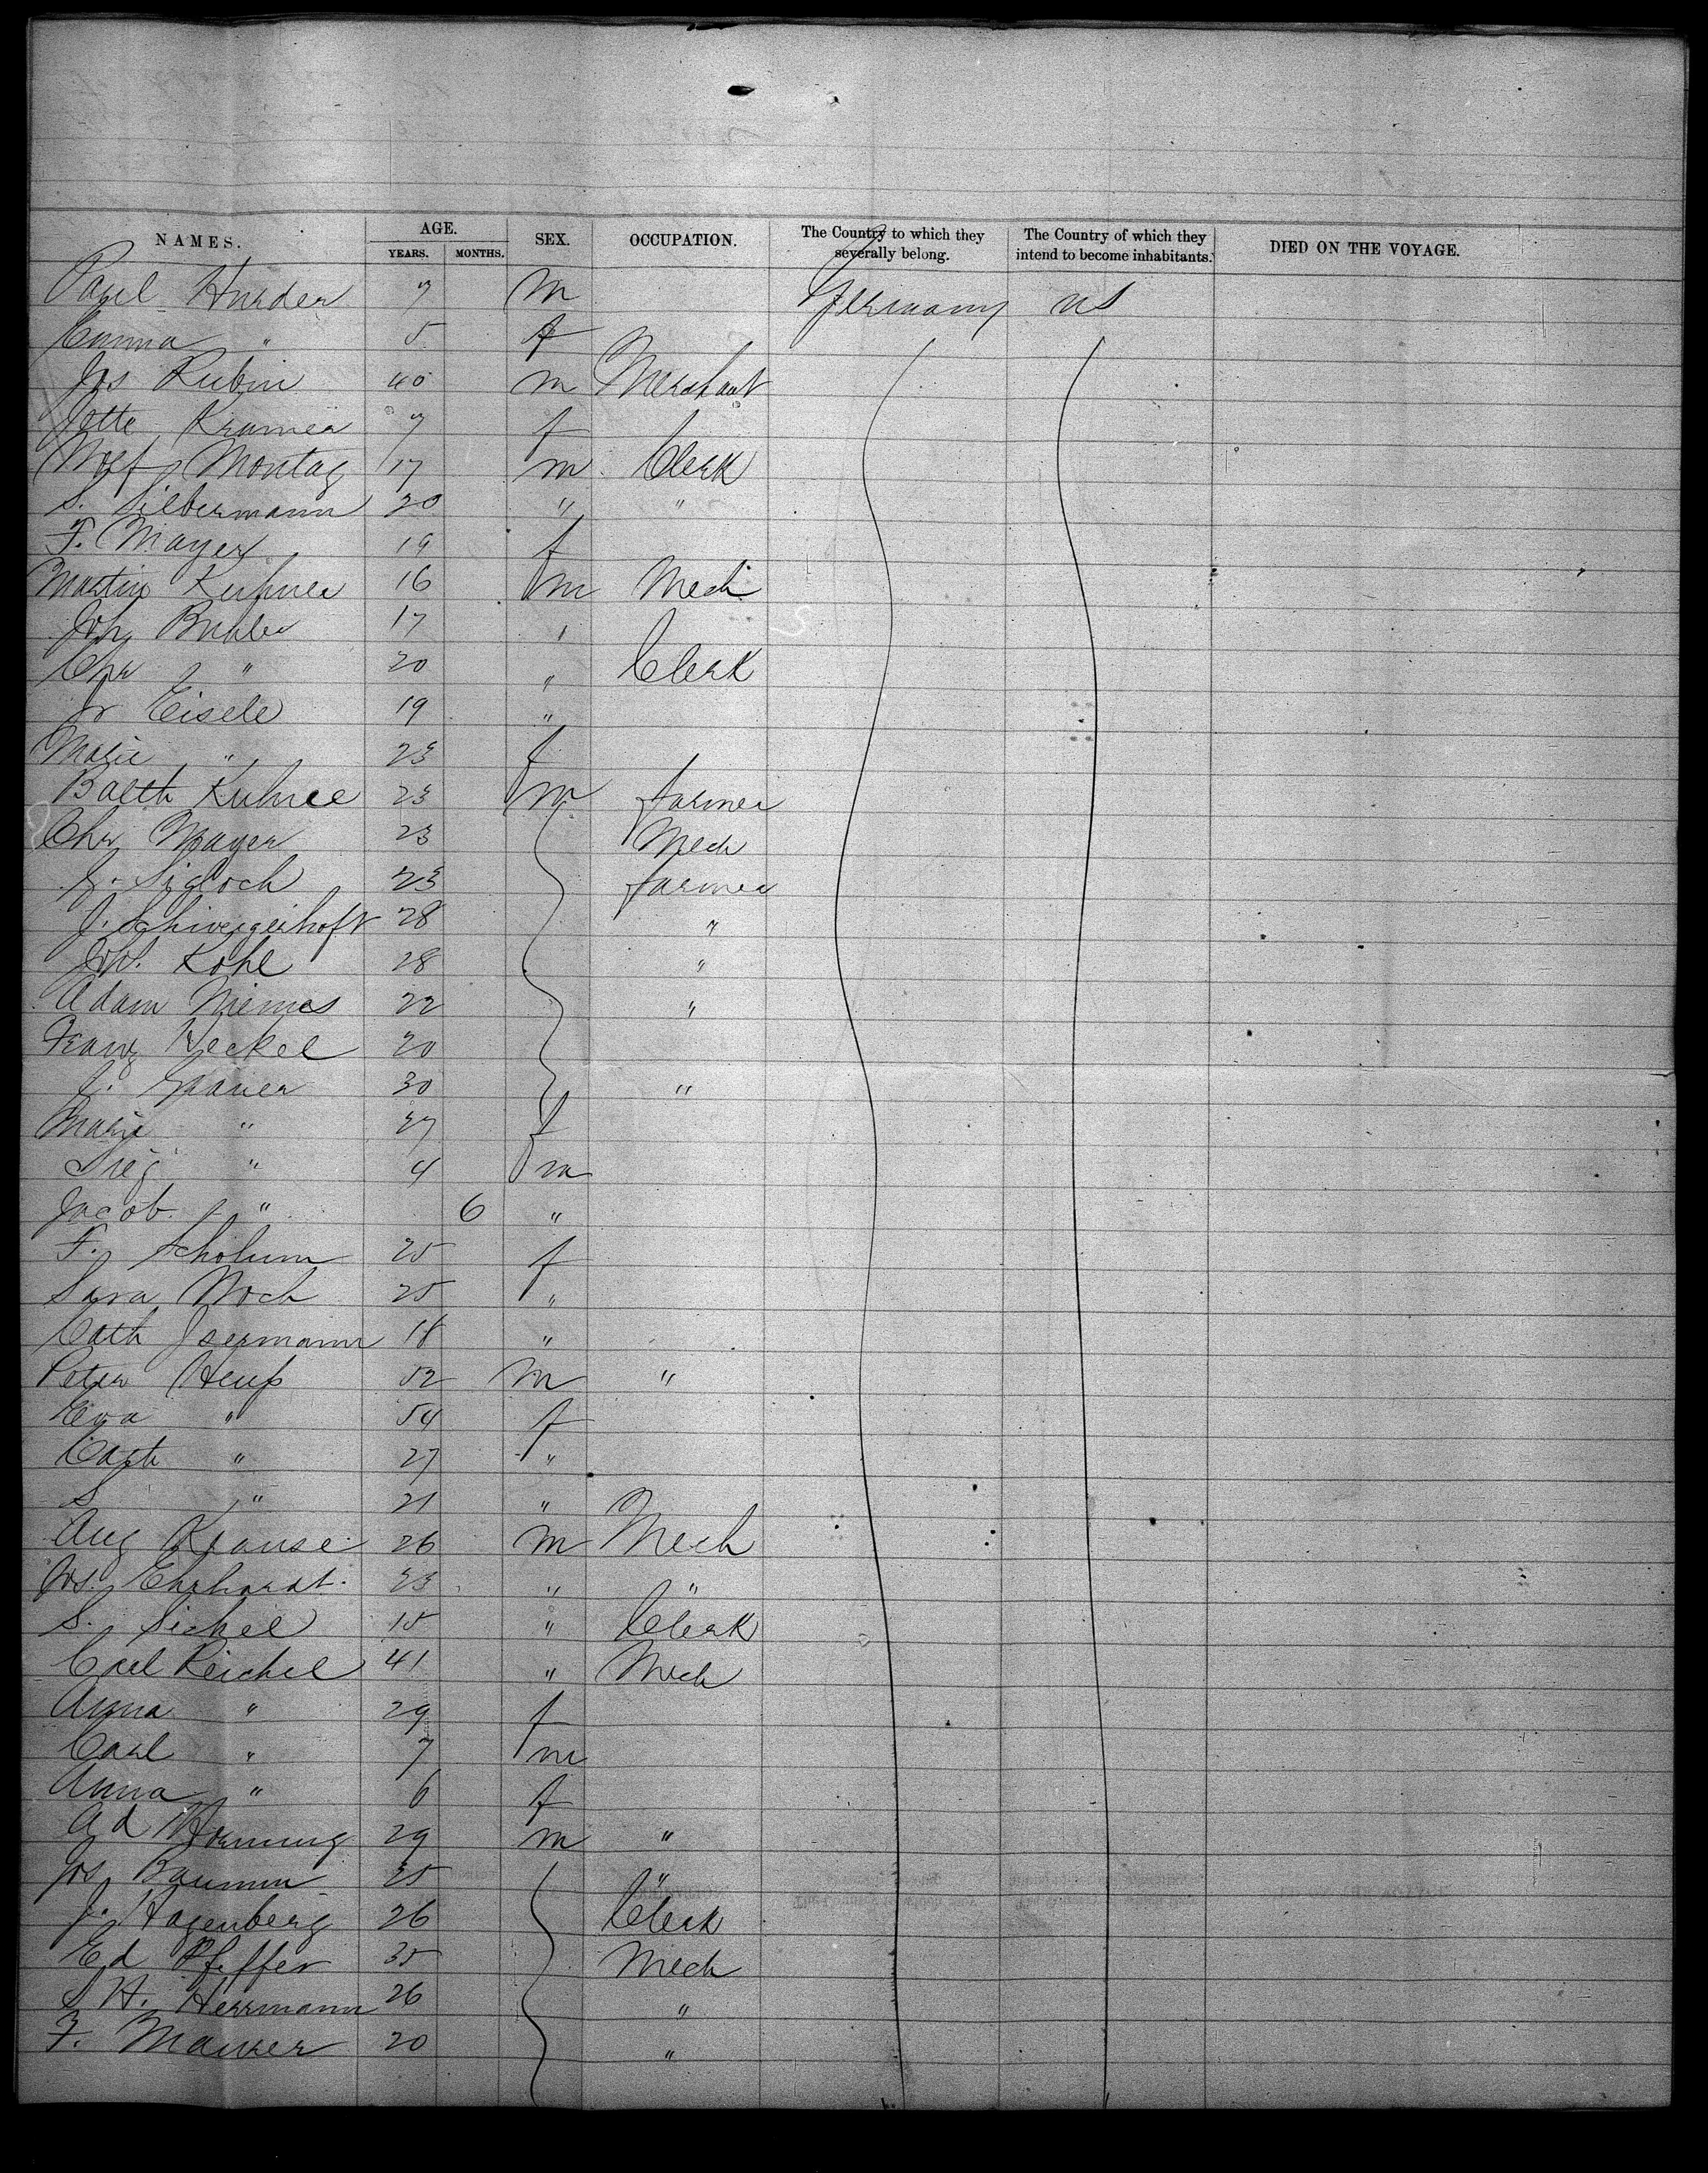 NAMES. AGE. SEX. OCCUPATION. The Country to which they severally belong. The Country of which they intend to become inhabitants. DIED ON THE VOYAGE.
YEARS. MONTHS.
Paul Hurder 7 m Germany US
Emma " 5 f
Jos Rubin 40 m Merchant
Jette Kramer 7 f
Montag 17 m Clerk
S. Silbermann 20 " "
F. Mayer 19 f
Martin Kuhner 16 m Mech
Joh Buhler 17 "
Chr " 20 " Clerk
Jr Eisele 19 "
Marie " 23 f
Balth Kuhnle 23 m farmer
Chr Mayer 23 Mech
G. Sigloch 23 farmer
J. 28 "
Joh. Kohl 28 "
Adam Niemes 22 "
Franz Heckel 20
30 "
Marie " 27 f
" 4 m
Jacob " 6 "
F. Scholum 25 f
Sara Moch 25 "
Cath Isermann 18 "
Peter Heuß 52 m "
Eva " 54 f
Cath " 27 "
S " 21 "
Aug Krause 26 m Mech
Jos. Ehrhardt. 23 " "
S. Sichel 15 " Clerk
Carl Reichel 41 " Mech
Anna " 29 f
Carl " 7 m
Anna " 6 f
Ad Hornung 29 m "
Jos Baumm 25 "
J. Hagenberg 26 Clerk
Ed Pfeffer 35 Mech
S H. Herrmann 26 "
F. Maurer 20 "